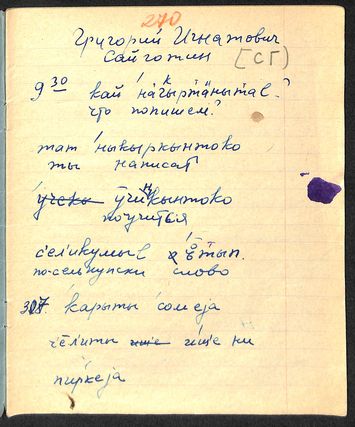 270
Григорий Игнатович
Сайготин [СГ]
9 30 кай на́чы̄рты̄нытал?
что попишем?
тат ны́кыркынтоко
ты написат
ӯчикынтоко
поучиться
се́лӣкумыл э̄́тып.
по-селькупски слово
307. карыты сомеја
че́литы и́ще ни
пиркеја